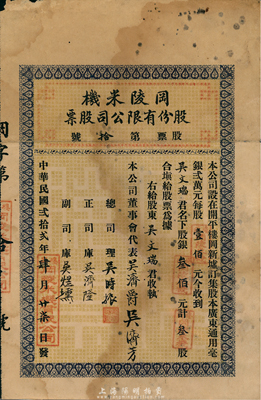 機米陵岡
票股司公限有份股
號拾第票股
本公司設在開平樓岡新墟訂集股本廣東通用毫
銀弍萬元每股壹佰元今收到
吳文瑞君名下股銀叁佰元計叁股
合填給股票為據
右給股東吳文瑞君收執
本公司董事會代表吳濟爵 吳濟芳
總司理吳時
正司庫吳濟陞
副司庫吳
中華民國弍拾弍年肆月廿柒日發
岡字第 號